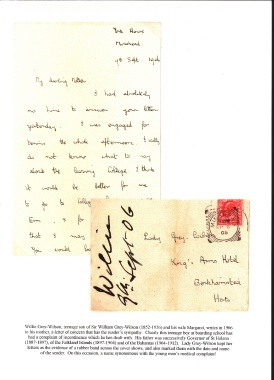 The House
9th Sept. 1906
My darling Mother
I had absolutely
no time to answer your letter
yesterday. I was engaged for
tennis the whole afternoon. I really
do not know what to say
about the Nursery College. I think
it would be better for me
to go to College
that I may
You would
Lady Grey-Wilson
King's Arms Hotel
Berkhamsted
Herts
Willie
9th Sept 06
Willie Grey-Wilson, teenage son of Sir William Grey-Wilson (1852-1926) and his wife Margaret, writes in 1906
to his mother, a letter of concern that has the reader's sympathy. Clearly this teenage boy at boarding school has
had a complaint of incontinence which he has dealt with. His father was successively Governor of St Helena
(1887-1897), of the Falkland Islands (1897-1904) and of the Bahamas (1904-1912). Lady Grey-Wilson kept her
letters as the evidence of a rubber band across the cover shows, and also marked them with the date and name
of the sender. On this occasion, a name synonymous with the young man's medical complaint!